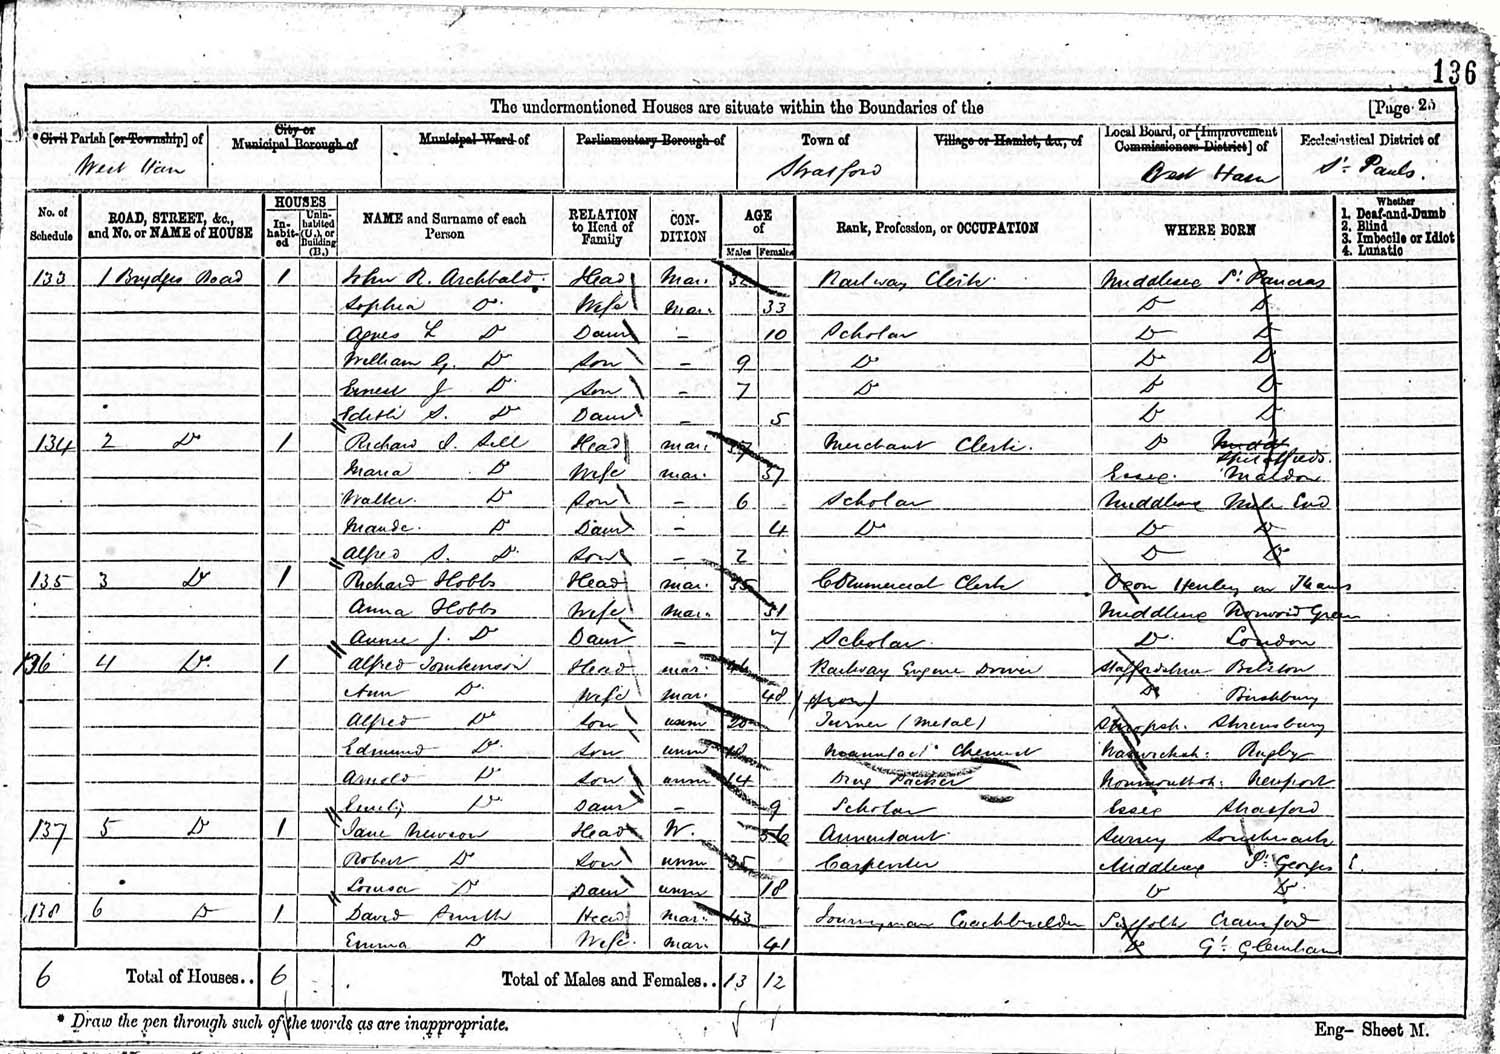 136
The undermentioned Houses are situate within the Boundaries of the [Page 25
*Civil Parish [or Township] of City or Municipal Borough of Municipal Ward of Parliamentary Borough of Town of Village or Hamlet, &c., of Local Board, or [Improvement Commissioners District] of Ecclesiastical District of
West Ham Stratford West Ham St. Pauls.
No. of Schedule ROAD, STREET, &c., and No. or NAME of HOUSE HOUSES Inhabited Uninhabited (U.), or Building (B.) NAME and Surname of each Person RELATION to Head of Family CONDITION AGE of Males Females Rank, Profession, or OCCUPATION WHERE BORN Whether 1. Deaf-and-Dumb 2. Blind 3. Imbecile or Idiot 4. Lunatic
133 1 Brydges Road 1 John R. Archbald Head Mar. 32 Railway Clerk Middlesex St. Pancras
Sophia Do Wife Mar. 33 Do Do
Agnes L Do Daur – 10 Scholar Do Do
William G. Do Son – 9 Do Do Do
Ernest J Do Son – 7 Do Do Do
Edith S. Do Daur – 5 Do Do
134 2 Do 1 Richard Sell Head Mar. 37 Merchant Clerk Do Spitalfields.
Maria Do Wife Mar. 37 Essex Maldon
Walter Do Son – 6 Scholar Middlesex Mile End
Maude Do Daur – 4 Do Do Do
Alfred S. Do Son – 2 Do Do
135 3 Do 1 Richard Hobbs Head Mar. 35 Commercial Clerk Oxon Henley on Thames
Anna Hobbs Wife Mar. 31 Middlesex Norwood Green
Annie J. Do Daur – 7 Scholar Do London
136 4 Do 1 Alfred Tomkinson Head Mar. Railway Engine Driver Staffordshire Bilston
Ann Do Wife Mar. 48 Do Bushbury
Alfred Do Son unm 20 Turner (Metal) Shropsh. Shrewsbury
Edmund Do Son unm Manufact Chemist Warwicksh: Rugby
Arnold Do Son unm 14 Drug Packer Monmouthsh: Newport
Emily Do Daur – 9 Scholar Essex Stratford
137 5 Do 1 Jane Newson Head W. 56 Annuitant Surrey Southwark
Robert Do Son unm 25 Carpenter Middlesex St. Georges E.
Louisa Do Daur unm 18 Do Do
138 6 Do 1 David Smith Head Mar. 43 Journeyman Coachbuilder Suffolk Cransford
Emma Do Wife Mar. 41 Do Gt. Glemham
6 Total of Houses.. 6 Total of Males and Females.. 13 12
* Draw the pen through such of the words as are inappropriate.
Eng– Sheet M.